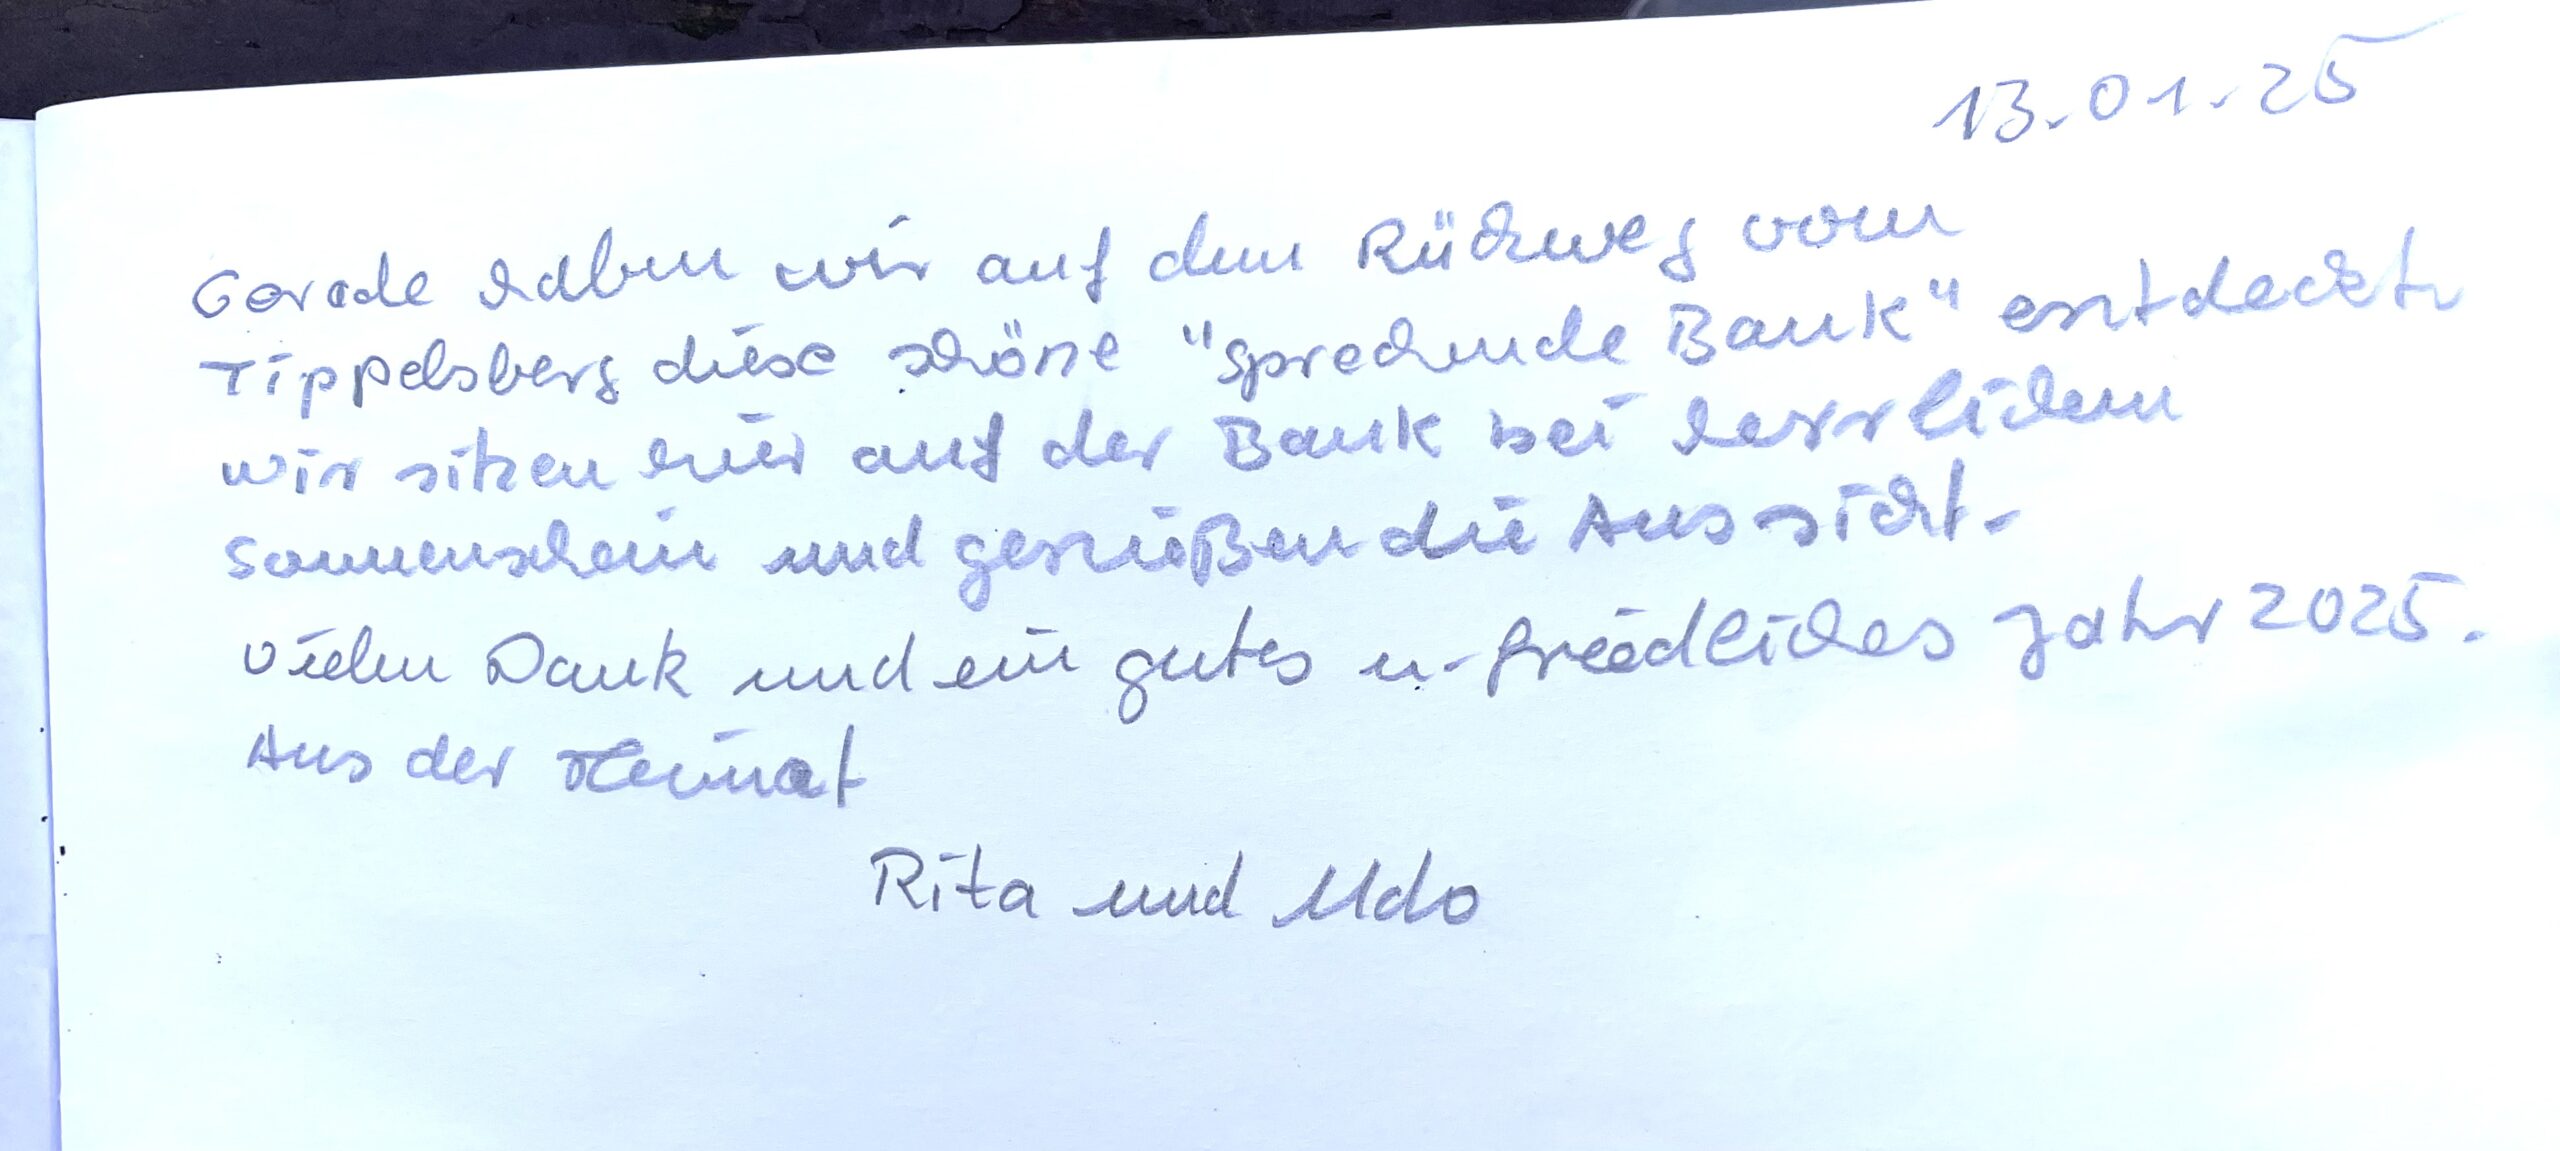 13.01.25
Gerade haben wir auf dem Rückweg vom
Tippelsberg diese schöne "sprechende Bank" entdeckt
wir sitzen hier auf der Bank bei herrlichem
Sonnenschein und genießen die Aussicht.
Vielen Dank und ein gutes u. friedliches Jahr 2025.
Aus der Heimat
Rita und Udo